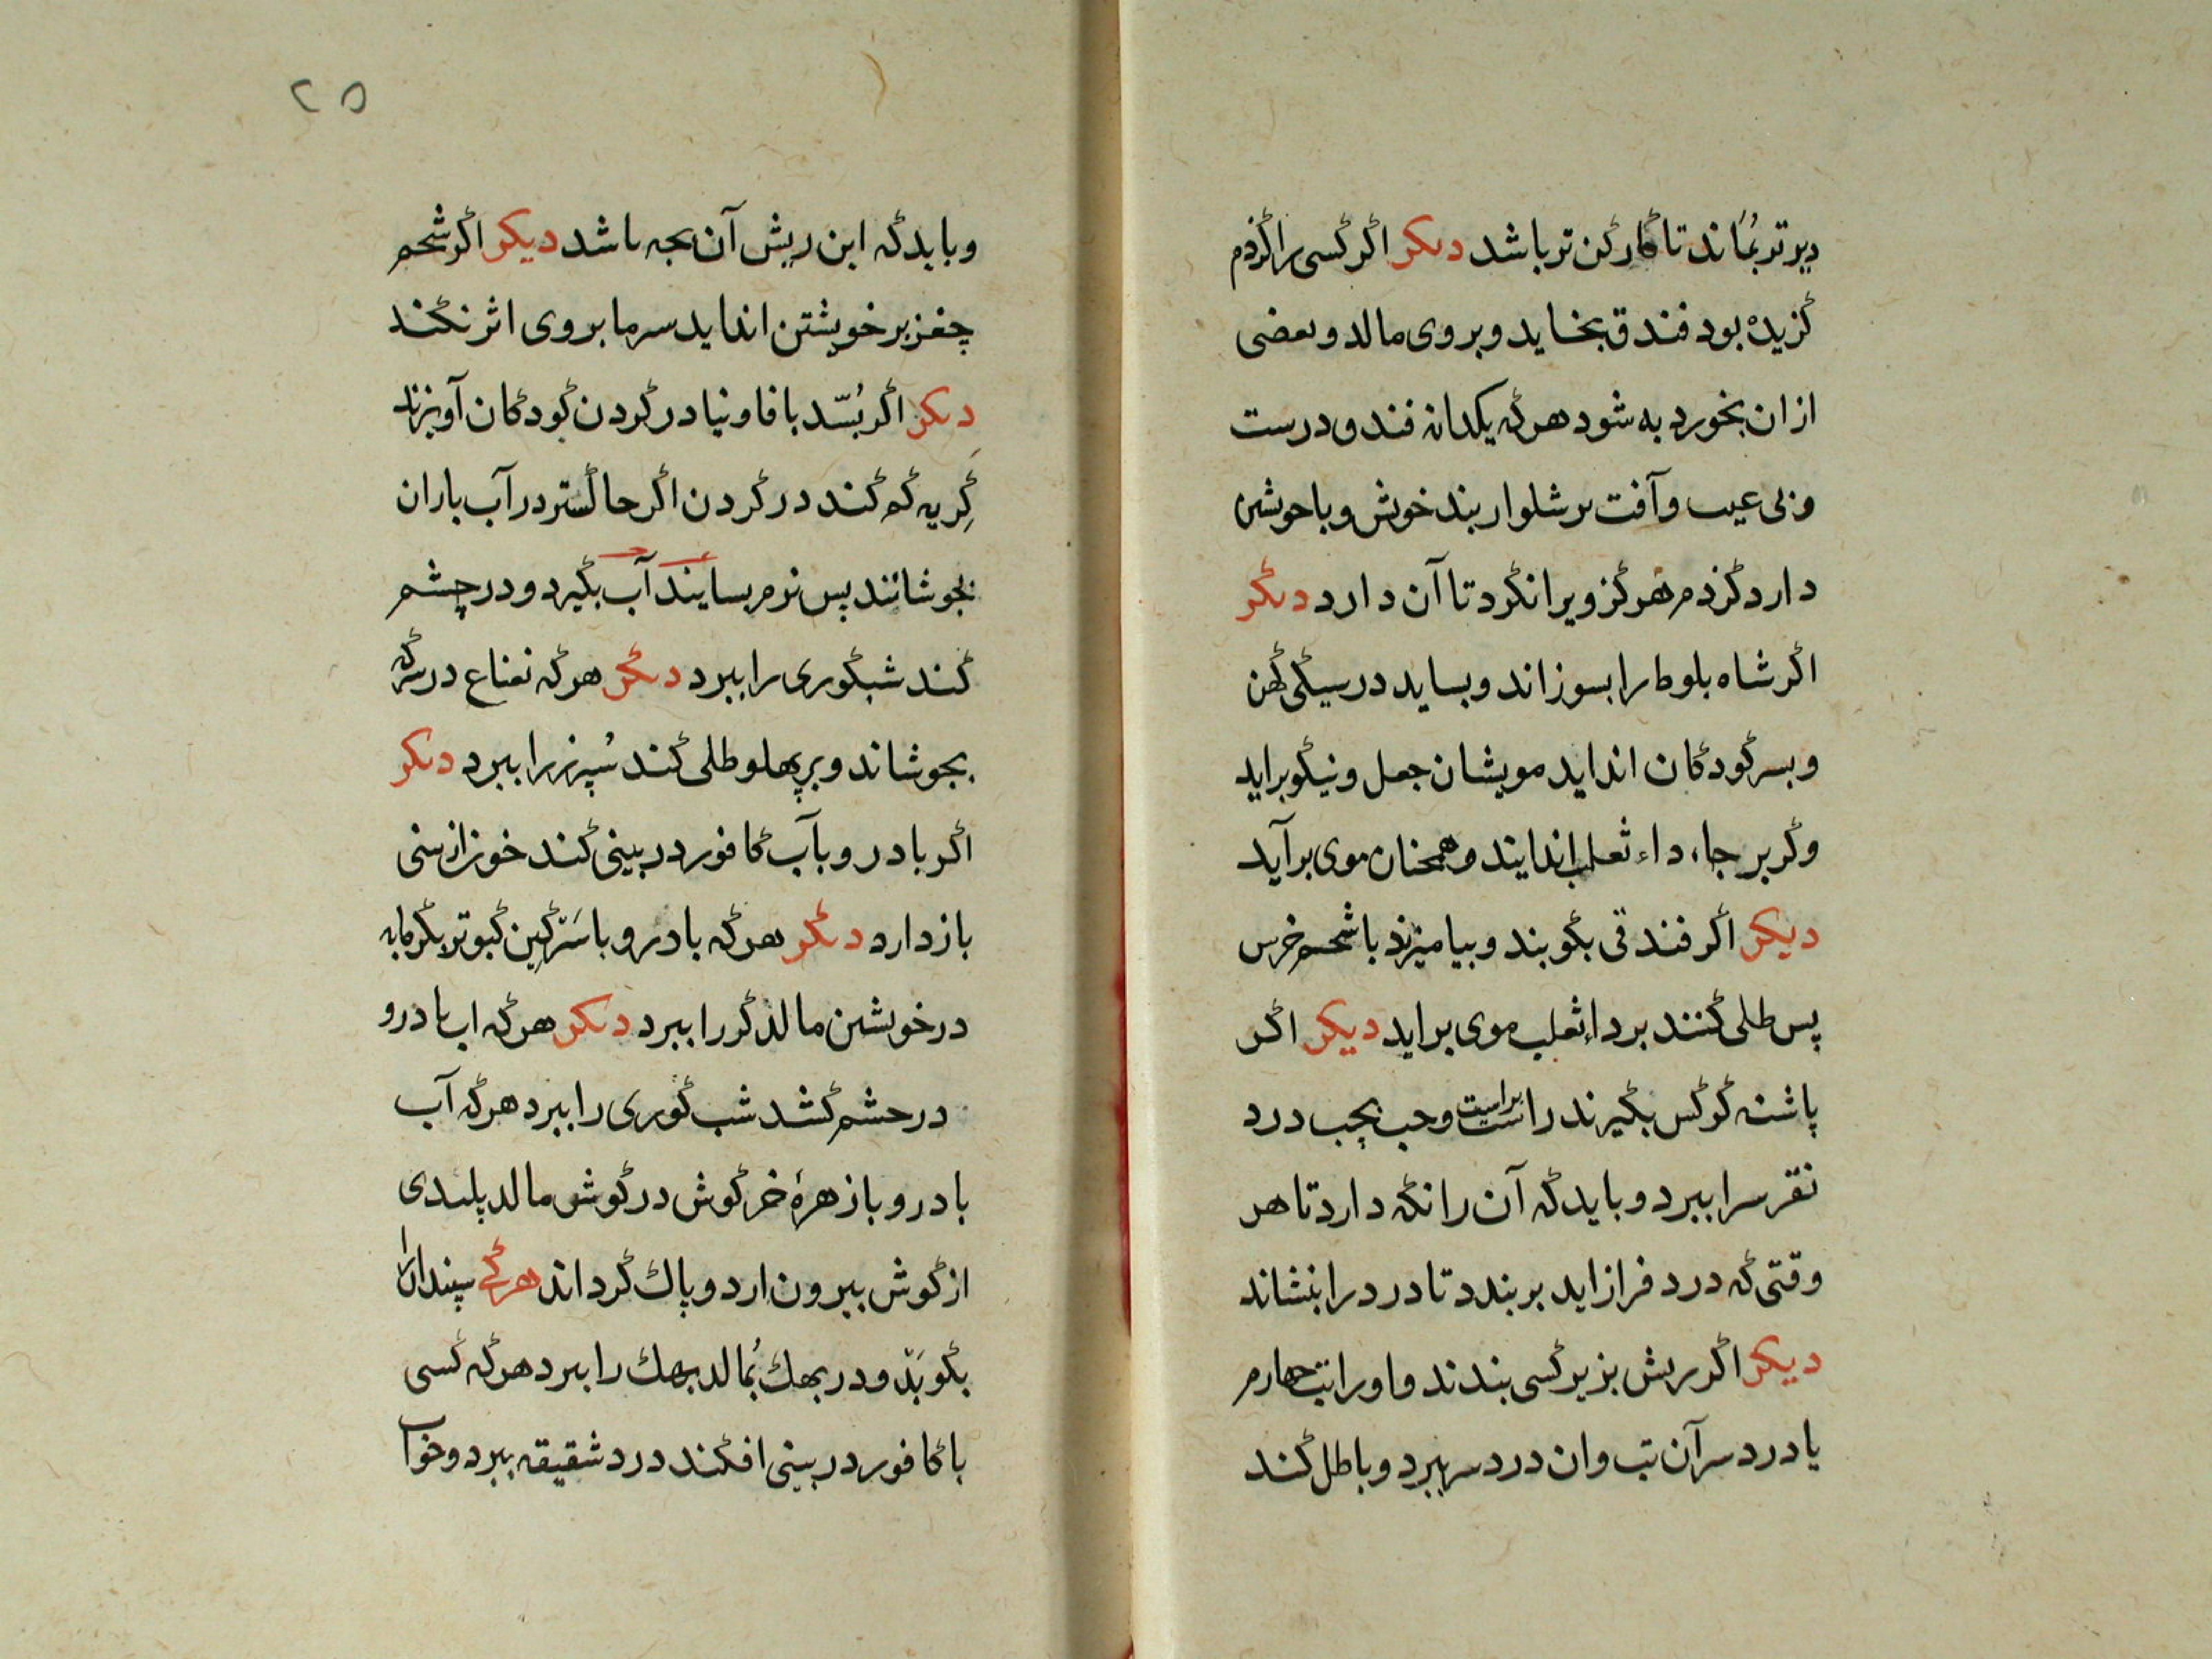 دیرتر بماند تا کارکن تر باشد دیکر اکر کسی را کزدم
کزیده بود فندق بخاید و بروی مالد و بعضی
از ان بخورد به شود هرکه یکدانه فندق درست
و بی عیب و آفت بر شلوار بند خوش و با خویشتن
دارد کزدم هرکز ویرا نکزد تا آن دارد دیکر
اکر شاه بلوط را بسوزاند و بساید در سیکی کهن
و بسر کودکان انداید مویشان جعل و نیکو براید
وکر بر جاء داء ثعلب اندایند و همچنان موی برآید
دیکر اکر فندقی بکوبند و بیامیزند با شحم خرس
پس طلی کنند بر داء ثعلب موی براید دیکر اکر
پاشنه کرکس بکیرند راست براست و چپ بچپ درد
نقرس را ببرد و باید که آن را نکه دارد تا هر
وقتی که درد فراز اید بربندد تا درد را بنشاند
دیکر اکر ریش بز بر کسی بندند و او را تب چهارم
یا درد سر آن تب و ان درد سر ببرد و باطل کند
۲۵
و باید که این ریش آن بجه باشد دیکر اکر شحم
چغز بر خویشتن انداید سرما بر وی اثر نکند
دیکر اکر بُسّد با فاونیا در کردن کودکان آویزند
کِریه کم کند در کردن اکر خاکستر در آب باران
بجوشانند پس نرم بسایند آب بکیرد و در چشم
کند شبکوری را ببرد دیکر هرکه نعناع در سرکه
بجوشاند و بر پهلو طلی کند سُپرز را ببرد دیکر
اکر بادرو بآب کافور در بینی کند خون از بینی
باز دارد دیکر هرکه بادرو با سَرکین کبوتر بکرمابه
در خویشتن مالد کر را ببرد دیکر هرکه اب بادرو
در چشم کشد شب کوری را ببرد هرکه آب
بادرو با زهرهٔ خرکوش در کوش مالد پلیدی
از کوش بیرون ارد و پاك کرداند هرکه سپندان را
بکوبَد و در بهك بُمالد بهك را ببرد هرکه کسی
با کافور در بینی افکند درد شقیقه ببرد و خواب